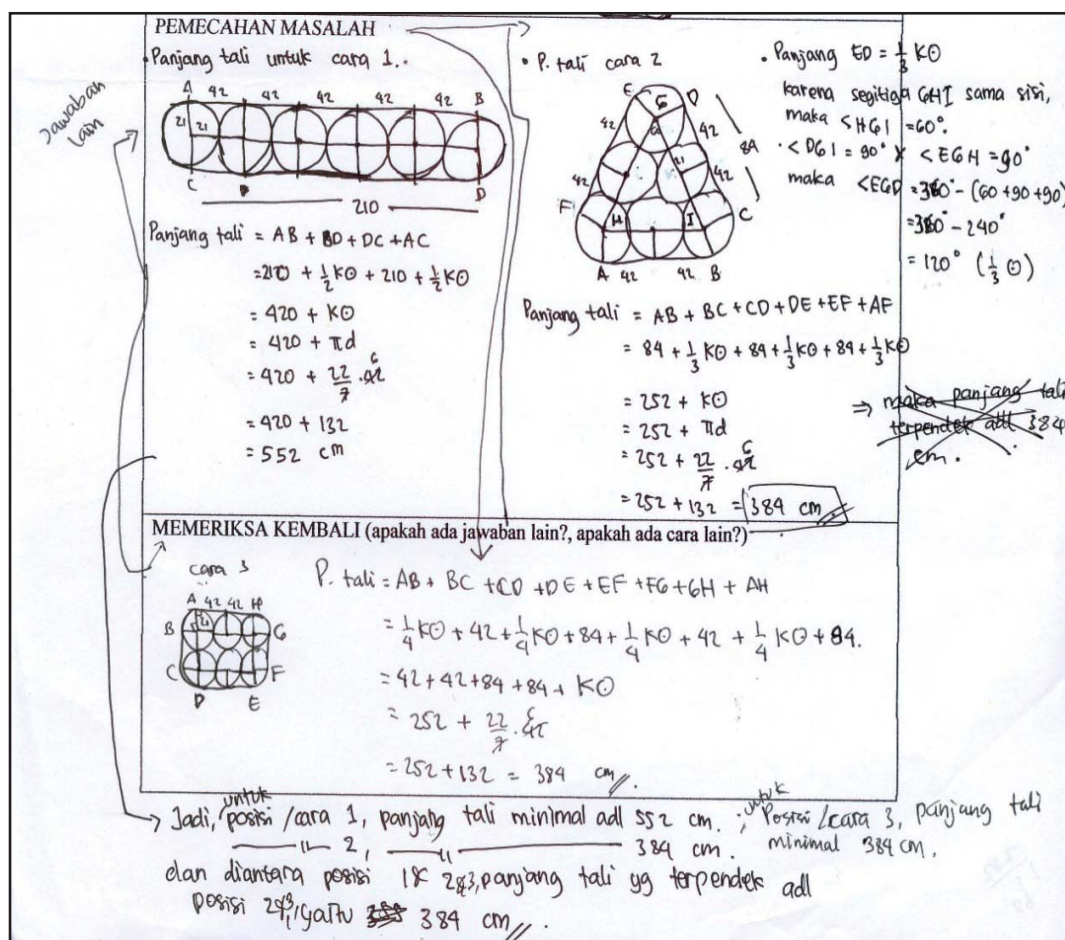 PEMECAHAN MASALAH
Jawaban
lain
• Panjang tali untuk cara 1.
A 42 42 42 42 42 B
21 21
C D
210
Panjang tali = AB + BD + DC + AC
= 210 + 1/2 K⊙ + 210 + 1/2 K⊙
= 420 + K⊙
= 420 + πd
= 420 + 22/7 . 42 6
= 420 + 132
= 552 cm
• P. tali cara 2
E G D
42 42 84
21
42 42
F H I C
A 42 42 B
Panjang tali = AB + BC + CD + DE + EF + AF
= 84 + 1/3 K⊙ + 84 + 1/3 K⊙ + 84 + 1/3 K⊙
= 252 + K⊙
= 252 + πd
= 252 + 22/7 . 42 6
= 252 + 132 = 384 cm
• Panjang ED = 1/3 K⊙
karena segitiga GHI sama sisi,
maka <HGI = 60°.
• <DGI = 90° & <EGH = 90°
maka <EGD = 360° - (60+90+90)
= 360° - 240°
= 120° (1/3 ⊙)
⇒ maka panjang tali
terpendek adl 384
cm.
MEMERIKSA KEMBALI (apakah ada jawaban lain?, apakah ada cara lain?)
cara 3
A 42 42 H
B 21 G
C F
D E
P. tali = AB + BC + CD + DE + EF + FG + GH + AH
= 1/4 K⊙ + 42 + 1/4 K⊙ + 84 + 1/4 K⊙ + 42 + 1/4 K⊙ + 84.
= 42 + 42 + 84 + 84 + K⊙
= 252 + 22/7 . 42 6
= 252 + 132 = 384 cm
Jadi, untuk posisi / cara 1, panjang tali minimal adl 552 cm. ; untuk Posisi / cara 3, panjang tali
—— 〃 2, —— 〃 —— 384 cm. minimal 384 cm.
dan diantara posisi 1 & 2&3, panjang tali yg terpendek adl
posisi 2&3, yaitu 384 cm.